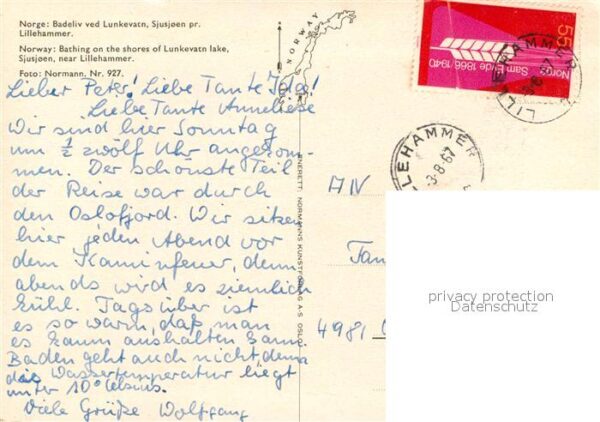 Norge: Badeliv ved Lunkevatn, Sjusjøen pr.
Lillehammer.
Norway: Bathing on the shores of Lunkevatn lake,
Sjusjøen, near Lillehammer.
Foto: Normann. Nr. 927.
NORWAY
Lieber Peter! Liebe Tante
Liebe Tante Anneliese
Wir sind hier Sonntag
um ½ zwölf Uhr angekom-
men. Der schönste Teil
der Reise war durch
den Oslofjord. Wir sitzen
hier jeden Abend vor
dem Kaminfeuer, denn
abends wird es ziemlich
kühl. Tagsüber ist
es so warm, daß man
es kaum aushalten kann.
Baden geht auch nicht, denn
die Wassertemperatur liegt
unter 10° Celsius.
Viele Grüße Wolfgang
ENERETT: NORMANNS KUNSTFORLAG A S OSLO
55
Norges
1866/1940
LILLEHAMMER
LILLEHAMMER
-3-8-67
Tan
4981
privacy protection
Datenschutz